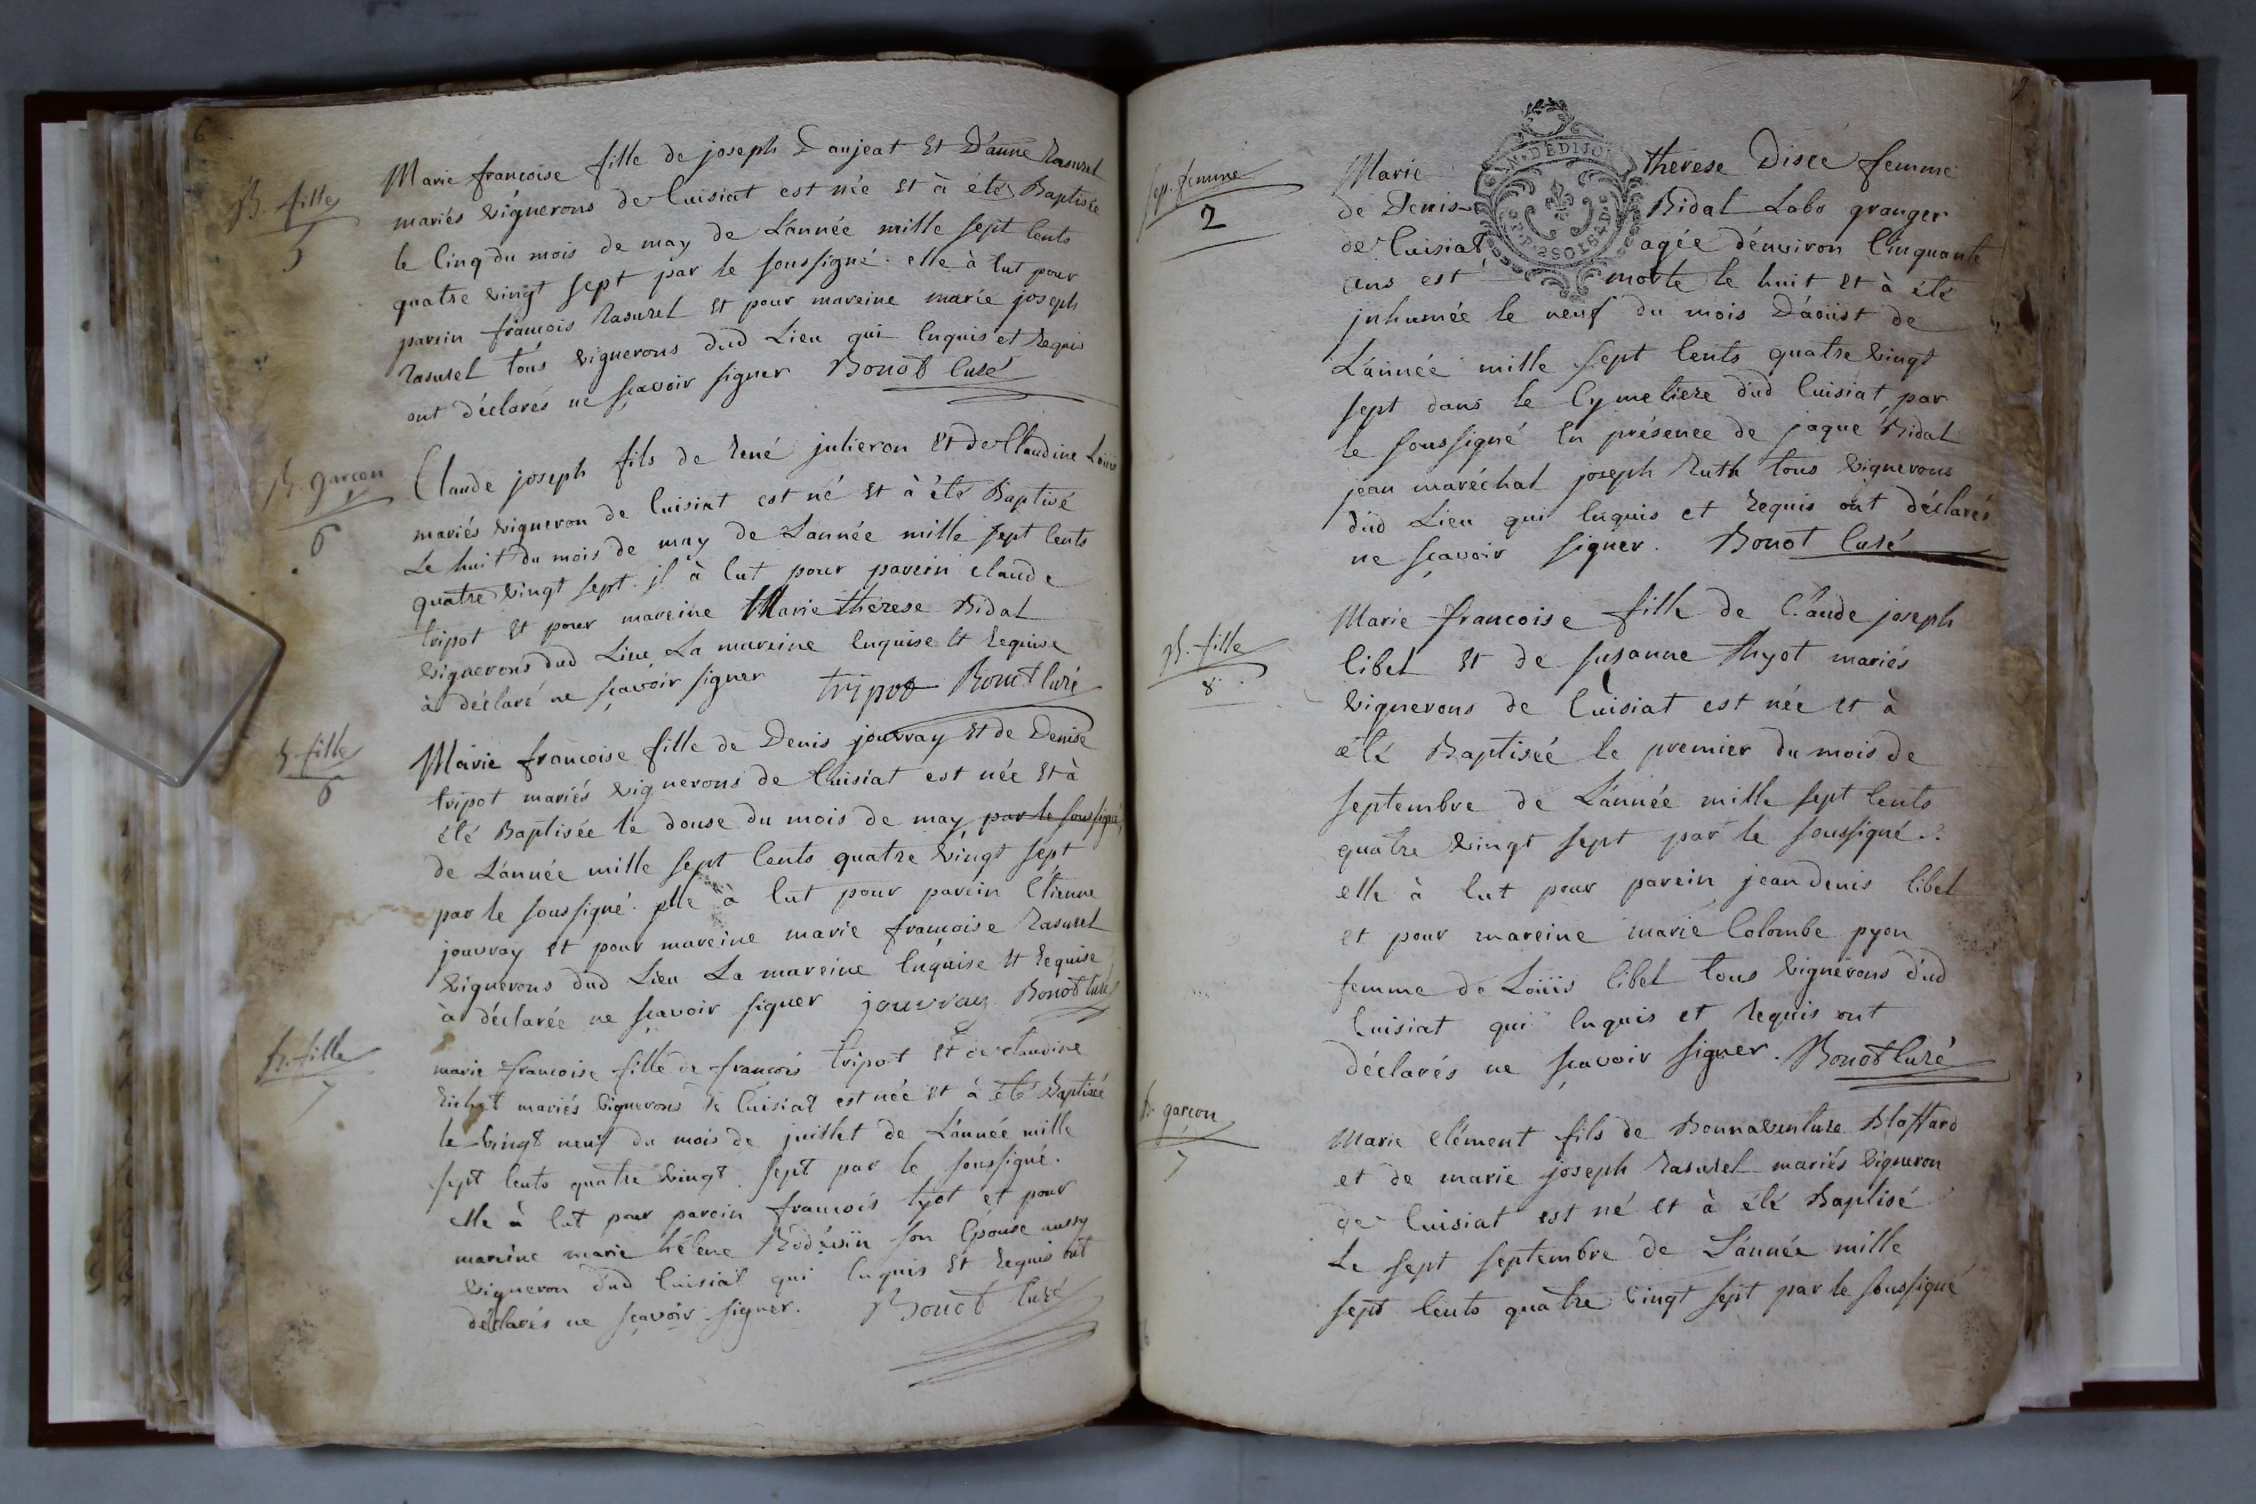 6
B. fille
5
Marie francoise fille de joseph Daujeat Et D'anne Rasurel
mariés vignerons de Cuisiat est née Et à été Baptisée
le Cinq du mois de may de L'année mille sept Cents
quatre vingt sept par le soussigné. elle à Eut pour
parein francois Rasurel Et pour mareine marie joseph
Rasurel tous vignerons dud Lieu qui Enquis et Requis
ont déclarés ne sçavoir signer Bonot Curé
B. garçon
6
Claude joseph fils de René julieron Et de Claudine Louis
mariés vigneron de Cuisiat est né Et à été Baptisé
Le huit du mois de may de Lannée mille sept Cents
quatre vingt sept. jl à Eut pour parein claude
tripot Et pour mareine Marie therese Bidal
vignerons dud Lieu La mareine Enquise Et Requise
à déclaré ne sçavoir signer tripot Bonot Curé
B. fille
6
Marie francoise fille de Denis jouvray Et de Denise
tripot mariés vignerons de Cuisiat est née Et à
été Baptisée le douse du mois de may par le soussigné
de L'année mille sept Cents quatre vingt sept
par le soussigné. elle à Eut pour parein Etienne
jouvray Et pour mareine marie francoise Rasurel
vignerons dud Lieu La mareine Enquise Et Requise
à déclarée ne sçavoir signer jouvray Bonot Curé
B. fille
7
marie francoise fille de françois tripot Et de claudine
mariés vignerons de Cuisiat est née Et à été Baptisée
le vingt neuf du mois de juillet de L'année mille
sept Cents quatre vingt sept par le soussigné.
elle à Eut pour parein francois tyot et pour
mareine marie hélene son Epouse aussy
vigneron dud Cuisiat qui Enquis Et Requis ont
déclarés ne sçavoir signer. Bonot Curé
sep. femme
2
Marie therese Discé femme
de Denis Bidal Labo granger
de Cuisiat agée d'environ Cinquante
ans est morte le huit Et à été
jnhumée le neuf du mois D'aoüst de
L'année mille sept Cents quatre vingt
sept dans le Cymetiere dud Cuisiat par
le soussigné En présence de jaque Bidal
jean maréchal joseph Ruth tous vignerons
dud Lieu qui Enquis et Requis ont déclarés
ne sçavoir signer. Bonot Curé
B. fille
8
Marie francoise fille de Claude joseph
libel Et de susanne thyot mariés
vignerons de Cuisiat est née Et à
été Baptiséé le premier du mois de
septembre de L'année mille sept Cents
quatre vingt sept par le soussigné.
elle à Eut pour parein jean denis libel
et pour mareine marie Colombe pyon
femme de Loüis libel tous vignerons dud
Cuisiat qui Enquis et Requis ont
déclarés ne sçavoir signer. Bonot Curé
B. garçon
7
Marie clément fils de Bonnaventure Bloffard
et de marie joseph Rasurel mariés vigneron
de Cuisiat est né Et à été Baptisé
Le sept septembre de L'année mille
sept Cents quatre vingt sept par le soussigné